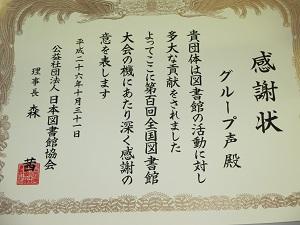 感謝状
グループ声 殿
貴団体は図書館の活動に対し
多大な貢献をされました
よってここに第百回全国図書館
大会の機にあたり深く感謝の
意を表します
平成二十六年十月三十一日
公益社団法人 日本図書館協会
理事長 森 茜